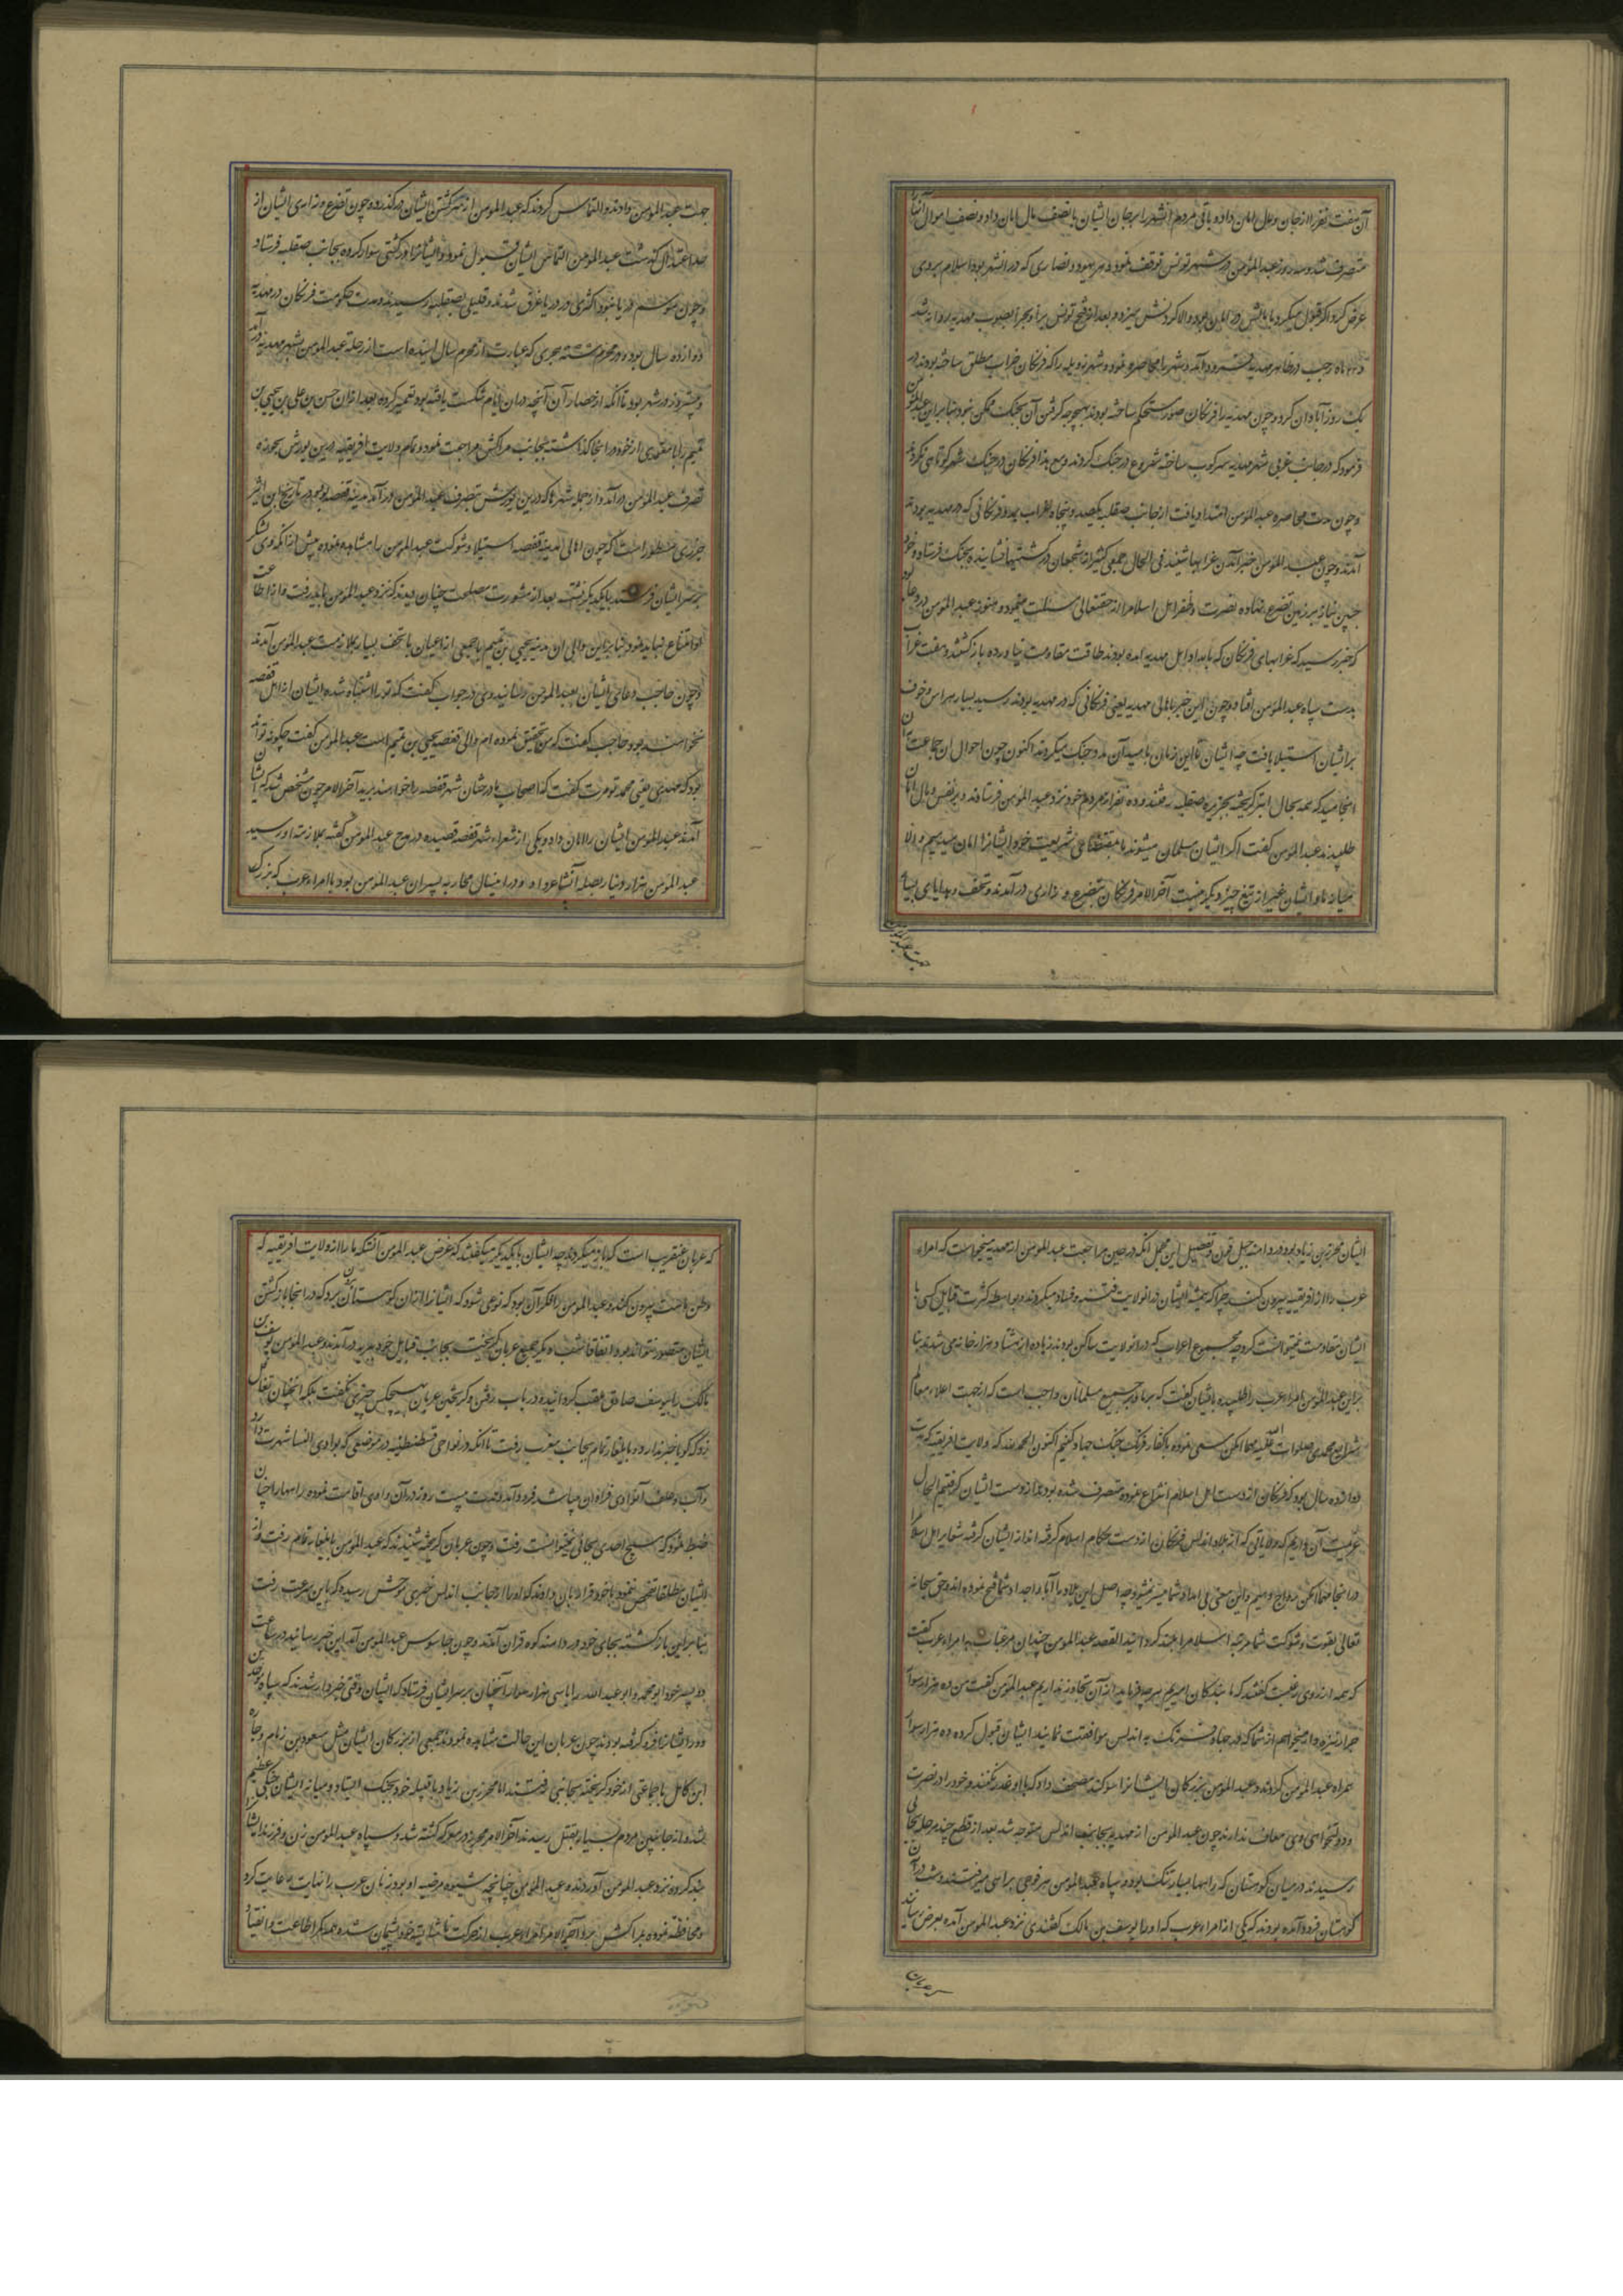 آن هفت نفر را از جان و مال امان داده باقی مردم آنشهر را بر جان ایشان با نصف مال امان داد و نصف اموال آنها را
متصرف شد و سه روز عبد المؤمن در شهر تونس توقف نمود و هر یهود و نصاری که در آنشهر بود اسلام بر وی
عرض کرد اگر قبول میکرد
ماه رجب در ظاهر مهدیه فرود آمد و شهر را محاصره نمود و شهر زویله را که فرنکان خراب مطلق ساخته بودند در
یک روز آبادان کرد و چون مهدیه را فرنکان مستحکم ساخته بودند بهیچ وجه گرفتن آن بجنک ممکن نبود بنابراین عبد المؤمن
فرمود که در جانب غربی شهر مهدیه سرکوب ساخته شروع در جنک کردند و مع هذا فرنکان در جنک شهر کوتاهی نکردند
و چون مدت محاصره عبد المؤمن امتداد یافت از جانب صقلیه یکصد و پنجاه غراب بمدد فرنکانی که در مهدیه بودند
آمدند و چون عبد المؤمن خبر آمدن غرابها شنید فی الحال جمعی کثیر از شجعان در کشتیها نشانیده بجنک فرستاد و خود
جبین نیاز بر زمین تضرع نهاده نصرت و ظفر اهل اسلام را از حقتعالی مسئلت مینمود و هنوز عبد المؤمن در دعا بود
که خبر رسید که غرابهای فرنکان که بامداد اهل مهدیه آمده بودند طاقت مقاومت نیاورده باز گشتند و هفت غراب
بدست سپاه عبد المؤمن افتاد و چون این خبر باهالی مهدیه یعنی فرنکانی که در مهدیه بودند رسید بسیار هراس و خوف
بر ایشان استیلا یافت چه ایشان تا این زمان بامید آن مدد جنک میکردند اکنون چون احوال ان جماعت بان
انجامید که همه بحال ابتر گریخته بجزیره صقلیه رفتند و ده نفر از مردم خود نزد عبد المؤمن فرستادند و بر نفس و مال امان
طلبیدند عبد المؤمن گفت اگر ایشان مسلمان میشوند بمقتضای شریعت خود ایشانرا امان میدهیم و الا
میانه ما و ایشان غیر از تیغ چیز دیگر نیست آخر الامر فرنکان بتضرع و زاری در آمدند و تحف و هدایای بسیار
جهت عبد المؤمن
جهت عبد المؤمن دادند و التماس کردند که عبد المؤمن از سر کشتن ایشان در گذرد و چون تضرع و زاری ایشان از
حد اعتدال گذشت عبد المؤمن التماس ایشان قبول نمود و ایشانرا در کشتی سوار کرده بجانب صقلیه فرستاد
و چون موسم دریا نبود اکثری در دریا غرق شدند و قلیلی بصقلیه رسیدند و مدت حکومت فرنکان در مهدیه
دوازده سال بود و در محرم سنه هجری که عبارت از محرم سال اینده است از رحله عبد المؤمن بشهر مهدیه در آمد
و بیست روز در شهر بود تا آنکه از حصار آن آنچه در ان ایام شکست یافته بود تعمیر کرده بعد از ان حسن بن علی بن یحیی بن
تمیم را با معتمدی از خود در انجا گذاشته بجانب مراکش مراجعت نمود و تمام ولایت افریقیه در این یورش بحوزه
تصرف عبد المؤمن در آمد و از جمله شهرها که درین یورش بتصرف عبد المؤمن در آمد مدینه قفصه بود و در تاریخ ابن اثیر
جزری مسطور است که چون اهالی مدینه قفصه استیلا و شوکت عبد المؤمن را مشاهده نمودند پیش از آنکه وی لشکر
بر سر ایشان فرستد با یکدیگر نشسته بعد از مشورت مصلحت چنان دیدند که نزد عبد المؤمن باید رفت و از اطاعت
او امتناع نباید نمود بنابراین والی ان مدینه یحیی بن تمیم با جمعی از اعیان با تحف بسیار بملازمت عبد المؤمن آمدند
و چون حاجب دعای ایشان بعبد المؤمن رسانید وی در جواب گفت که تو را اشتباه شده ایشان از اهل قفصه
نخواهند بود حاجب گفت که من تحقیق نموده ام والی قفصه یحیی بن تمیم است عبد المؤمن گفت چگونه تواند
بود که مهدی یعنی محمد تومرت گفت که اصحاب ما درختان شهر قفصه را خواهند برید آخر الامر چون مشخص شد که ایشان
آمدند عبد المؤمن ایشان را امان داد و یکی از شعراء شهر قفصه قصیده در مدح عبد المؤمن گفته بملازمت او رسید
عبد المؤمن هزار دینار بصله آنشاعر داد و در اینسال محاربه پسران عبد المؤمن بود با امراء عرب که بزرک
ایشان محرز بن زیاد بود در دامنه جبل قرن و تفصیل این مجمل آنکه در حین مراجعت عبد المؤمن از مهدیه میخواست که امراء
عرب را از افریقیه بیرون کند چرا که همیشه ایشان در انولایت فتنه و فساد میکردند و بواسطه کثرت قبایل کسی با
ایشان مقاومت نمیتوانست کرد چه مجموع اعراب که در انولایت ساکن بودند زیاده از هشتاد هزار خانه می شدند بنا
براین عبد المؤمن امراء عرب را طلبیده با ایشان گفت که بر ما و بر جمیع مسلمانان واجب است که از جهت اعلاء معالم
شرایع محمدی صلوات الله علیه مهما امکن سعی نموده با کفار فرنک جنک و جهاد کنیم اکنون الحمد لله که ولایت افریقیه که مدت
دوازده سال بود که فرنکان از دست اهل اسلام انتزاع نموده متصرف شده بودند از دست ایشان گرفتیم الحال
عزیمت آن داریم که ولایاتی که از بلاد اندلس فرنکان از دست حکام اسلام گرفته اند از ایشان گرفته شعایر اهل اسلام
در انجا مهما امکن رواج دهیم و این معنی بی امداد شما میسر نمیشود چه اصل این بلاد را آبا و اجداد شما فتح نموده اند و حق سبحانه
تعالی بقوت و شوکت شما مرتبه اسلام را بلند گردانید القصه عبد المؤمن چندان مرغبات به امراء عرب گفت
که همه از روی رغبت گفتند که ما بندگان امیریم بهر چه فرماید از آن تجاوز نداریم عبد المؤمن گفت من ده هزار سوار
جرار نیزه دار میخواهم از شما که در جهاد فرنک به اندلس موافقت نمایند ایشان قبول کرده ده هزار سوار
همراه عبد المؤمن کردند و عبد المؤمن بزرکان ایشانرا سوکند مصحف داد که با او غدر نکنند و خود را در نصرت
و دولتخواهی وی معاف ندارند چون عبد المؤمن از مهدیه بجانب اندلس متوجه شد بعد از قطع چند مرحله بجائی
رسیدند در میان کوهستان که راهها بسیار تنک بود و سپاه عبد المؤمن هر فوجی براهی میرفتند و شب در آن
کوهستان فرود آمده بودند که یکی از امراء عرب که او را یوسف بن مالک گفتندی نزد عبد المؤمن آمده بعرض رسانید
که عربان
که عربان عنقریب است که باز میگردند چه ایشان با یکدیگر میگفتند که غرض عبد المؤمن آنستکه ما را از ولایت افریقیه که
وطن ماست بیرون کند و عبد المؤمن را فکر آن بود که نوعی شود که ایشانرا از ان کوهستان بیرون برد که در انجا باز گشتن
ایشان متصور نتواند بود اتفاقا شب دیگر جمیع عربان گریخته بجانب قبایل خود بدر آمدند و عبد المؤمن یوسف بن
مالک را یوسف صادق لقب گردانیده در باب رفتن و گریختن عربان بهیچکس چیزی نگفت بلکه انچنان تغافل
زد که گویا خبر ندارد و بایلغار تمام بجانب مغرب رفت تا آنکه در نواحی قسطنطنیه در موضعی که بوادی النسا شهرت دارد
و آب و علف آنوادی فراوان میباشد فرود آمد و مدت بیست روز در آن وادی اقامت نموده راهها را چنان
ضبط نمود که هیچ احدی بجائی نمیتوانست رفت و چون عربان گریخته شنیدند که عبد المؤمن بایلغار تمام رفت و از
ایشان مطلقا تفحص ننمود با خود قرار بان دادند که او را از جانب اندلس خبری موحش رسیده که باین سرعت رفت
بنابراین باز گشته بجای خود در دامنه کوه قران آمدند و چون جاسوس عبد المؤمن آمد این خبر رسانید در ساعت
دو پسر خود ابو محمد و ابو عبد الله را با سی هزار سوار آنچنان بر سر ایشان فرستاد که ایشان وقتی خبردار شدند که سپاه موحدین
دور ایشانرا فرو گرفته بودند چون عربان این حالت مشاهده نمودند جمعی از بزرکان ایشان مثل مسعود بن زمام و جباره
ابن کامل با جماعتی از خود گریخته بجانبی رفتند اما محرز بن زیاد با قبیله خود بجنک ایستاد و میانه ایشان جنکی عظیم
شد و از جانبین مردم بسیار بقتل رسیدند آخر الامر محرز در معرکه کشته شد و سپاه عبد المؤمن زن و فرزند ایشانرا
بند کرده نزد عبد المؤمن آوردند و عبد المؤمن چنانچه شیوه مرضیه او بود زنان عرب را نهایت رعایت کرد
و محافظه نموده بمراکش برد آخر الامر امراء عرب از حرکت ناشایسته خود پشیمان شده همه کمر اطاعت و انقیاد